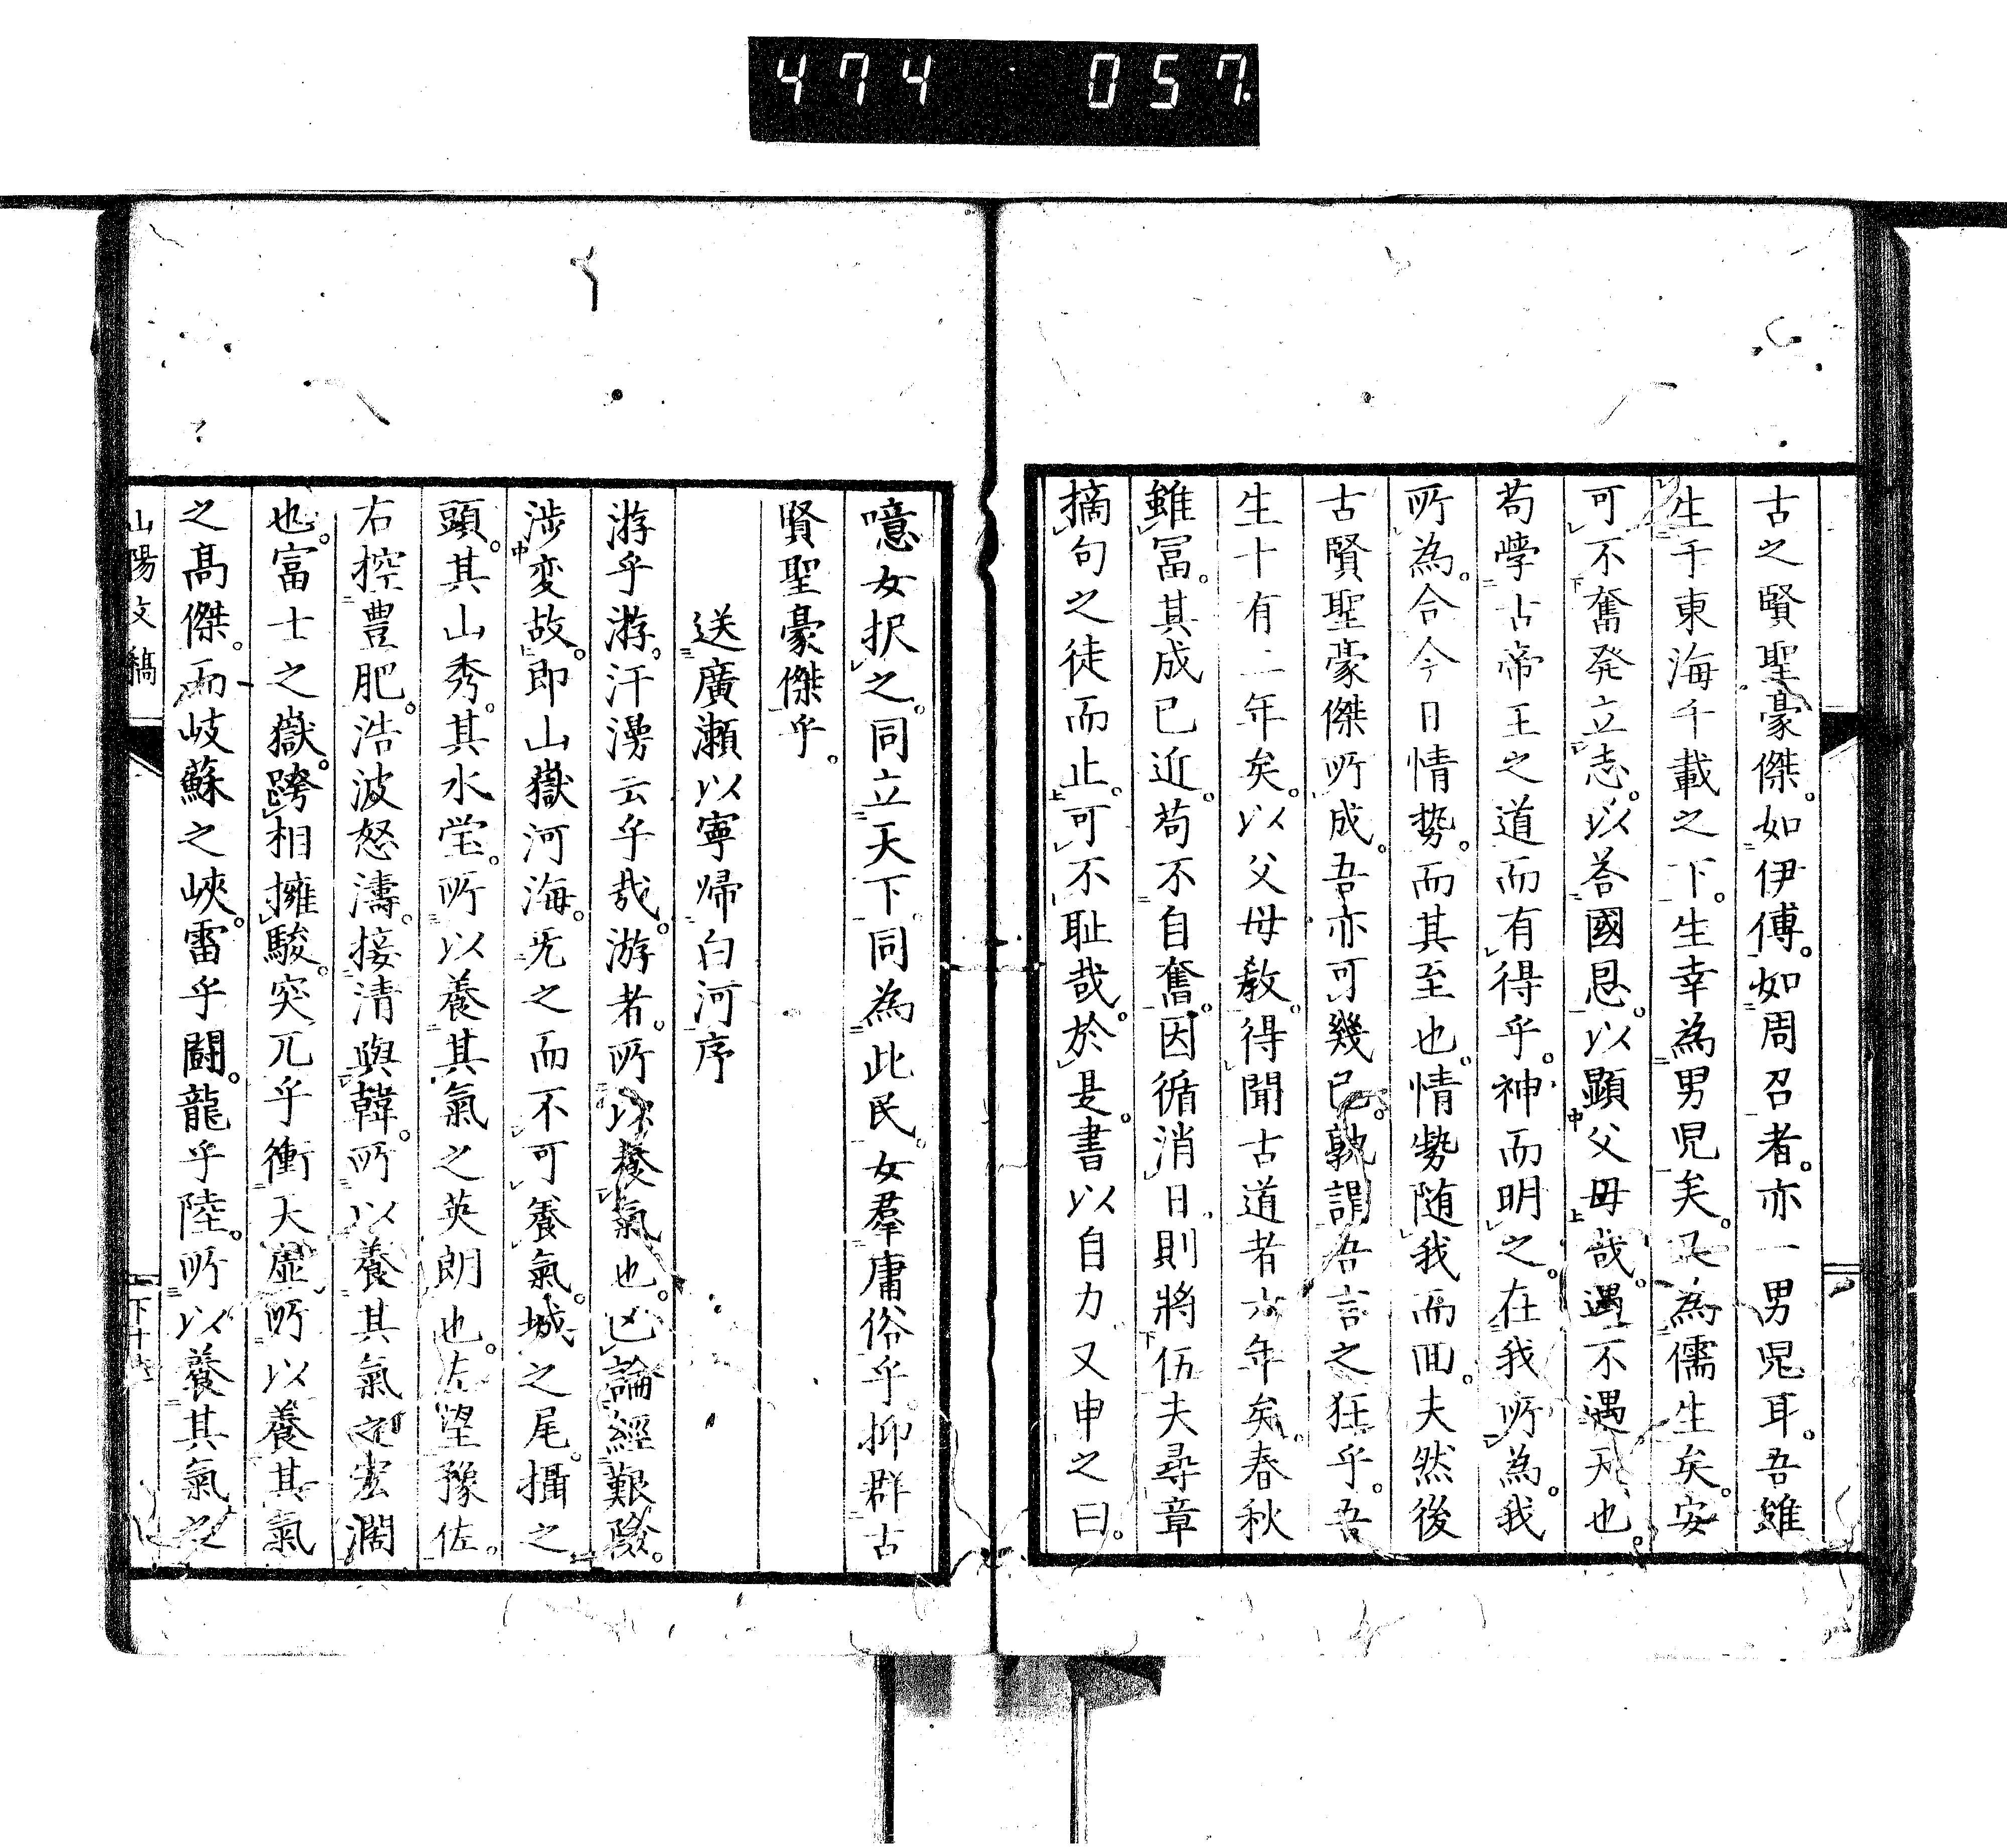 474 057
古之賢聖豪傑。如伊傅。如周召者。亦一男児耳。吾雖
生于東海千載之下。生幸為男児矣。又為儒生矣。安
可不奮発立志。以荅國恩。以顕父母哉。遇不遇天也。
苟学古帝王之道而有得乎。神而明之。在我所為。我
所為。合今日情勢。而其至也。情勢随我而囬。夫然後
古賢聖豪傑所成。吾亦可幾已。孰謂吾言之狂乎。吾
生十有二年矣。以父母教。得聞古道者六年矣。春秋
雖冨。其成已近。苟不自奮。因循消日、則將伍夫尋章
摘句之徒而止。可不耻哉。於是。書以自力又申之曰。
噫女択之。同立天下。同為此民。女羣庸俗乎。抑群古
賢聖豪傑乎。
送廣瀬以寧帰白河序
游乎游。汗漫云乎哉。游者。所以養氣也。凶論經艱險。
渉変故。即山嶽河海。旡之而不可養氣。城之尾。攝之
頭。其山秀。其水瑩。所以養其氣之英朗也。左望豫佐。
右控豊肥。浩波怒濤。接清與韓。所以養其氣之宏濶
也。富士之嶽。跨相擁駿。突兀乎衝大虚。所以養其氣
之髙傑。而岐蘇之峽。雷乎闘。龍乎陸。所以養其氣之
山陽文稿